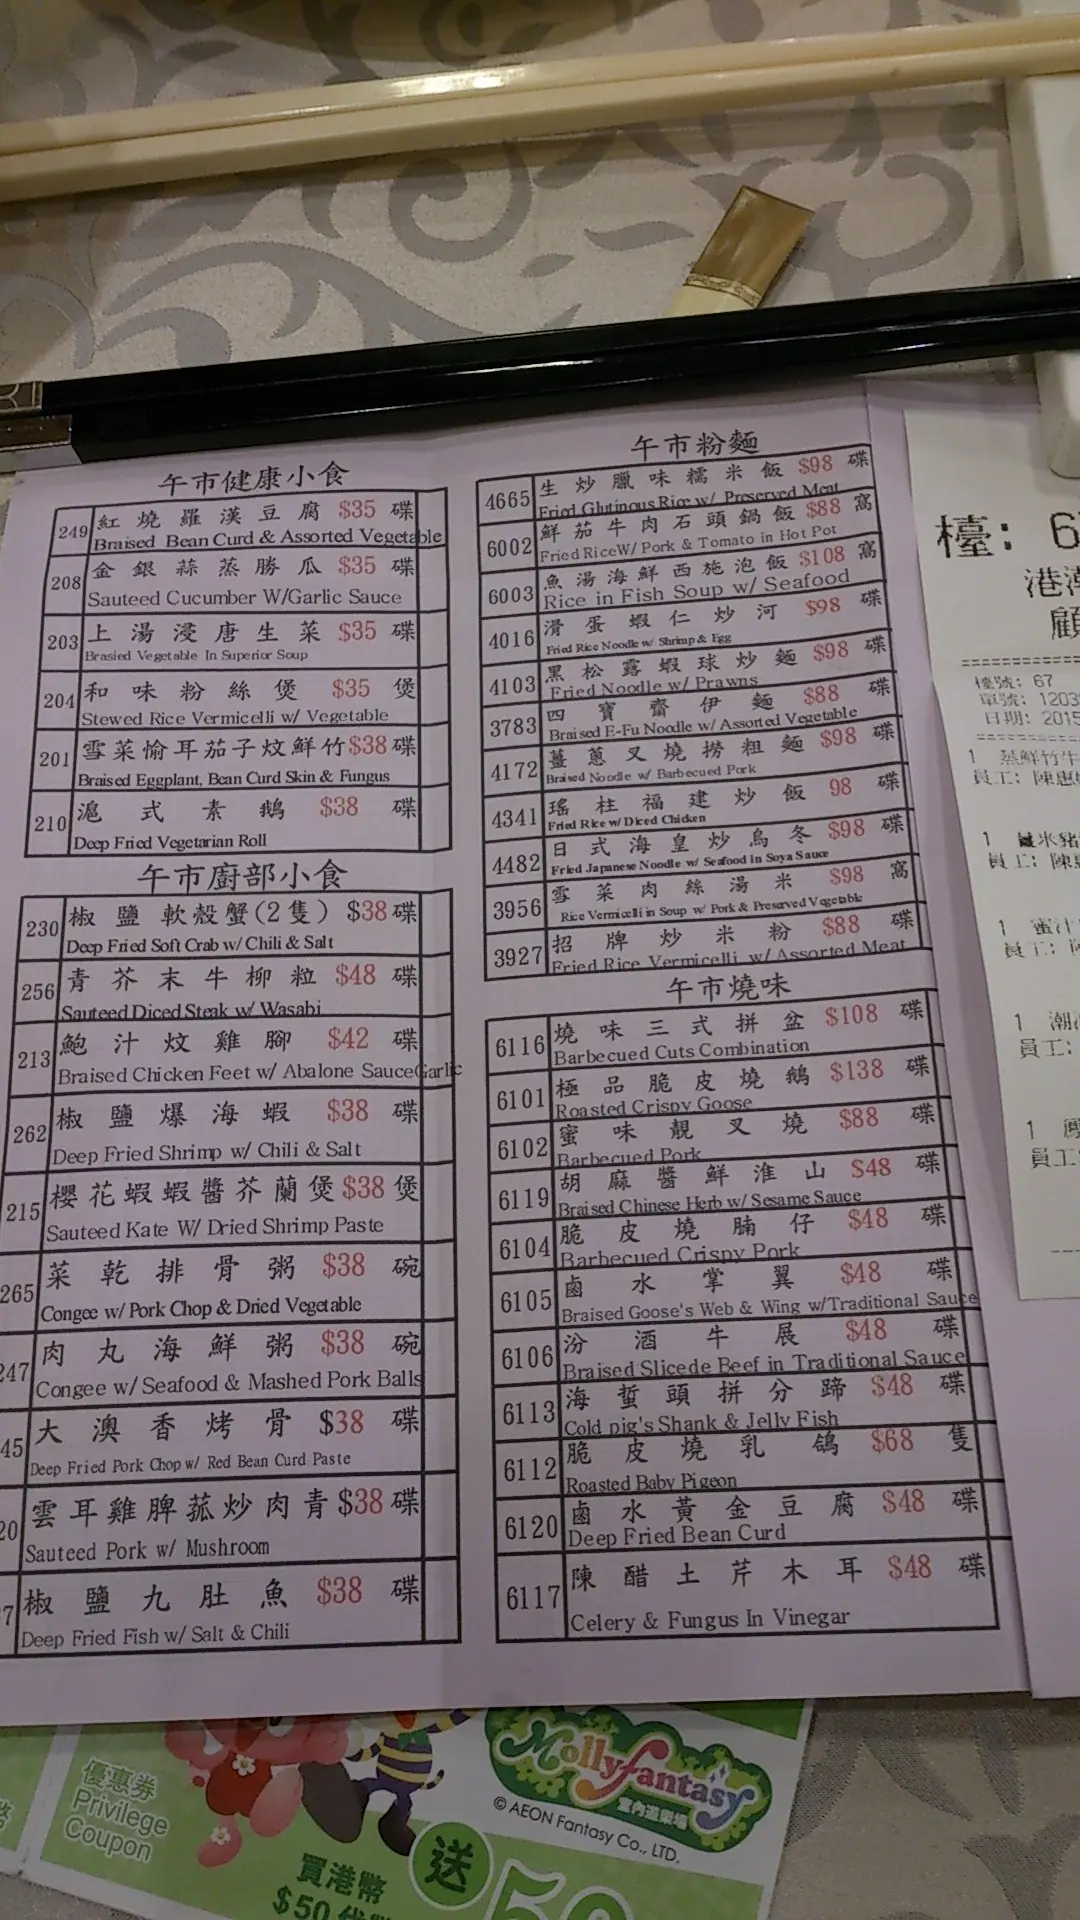 午市健康小食
249 紅燒羅漢豆腐 $35 碟
Braised Bean Curd & Assorted Vegetable
208 金銀蒜蒸勝瓜 $35 碟
Sauteed Cucumber W/Garlic Sauce
203 上湯浸唐生菜 $35 碟
Brasied Vegetable In Superior Soup
204 和味粉絲煲 $35 煲
Stewed Rice Vermicelli w/ Vegetable
201 雪菜愉耳茄子炆鮮竹 $38 碟
Braised Eggplant, Bean Curd Skin & Fungus
210 滬式素鵝 $38 碟
Deep Fried Vegetarian Roll
午市廚部小食
230 椒鹽軟殼蟹(2隻) $38 碟
Deep Fried Soft Crab w/ Chili & Salt
256 青芥末牛柳粒 $48 碟
Sauteed Diced Steak w/ Wasabi
213 鮑汁炆雞腳 $42 碟
Braised Chicken Feet w/ Abalone SauceGarlic
262 椒鹽爆海蝦 $38 碟
Deep Fried Shrimp w/ Chili & Salt
215 櫻花蝦蝦醬芥蘭煲 $38 煲
Sauteed Kate W/ Dried Shrimp Paste
265 菜乾排骨粥 $38 碗
Congee w/ Pork Chop & Dried Vegetable
247 肉丸海鮮粥 $38 碗
Congee w/ Seafood & Mashed Pork Balls
45 大澳香烤骨 $38 碟
Deep Fried Pork Chop w/ Red Bean Curd Paste
20 雲耳雞脾菰炒肉青 $38 碟
Sauteed Pork w/ Mushroom
7 椒鹽九肚魚 $38 碟
Deep Fried Fish w/ Salt & Chili
午市粉麵
4665 生炒臘味糯米飯 $98 碟
Fried Glutinous Rice w/ Preserved Meat
6002 鮮茄牛肉石頭鍋飯 $88 窩
Fried RiceW/ Pork & Tomato in Hot Pot
6003 魚湯海鮮西施泡飯 $108 窩
Rice in Fish Soup w/ Seafood
4016 滑蛋蝦仁炒河 $98 碟
Fried Rice Noodle w/ Shrimp & Egg
4103 黑松露蝦球炒麵 $98 碟
Fried Noodle w/ Prawns
3783 四寶齋伊麵 $88 碟
Braised E-Fu Noodle w/ Assorted Vegetable
4172 薑蔥叉燒撈粗麵 $98 碟
Braised Noodle w/ Barbecued Pork
4341 瑤柱福建炒飯 98 碟
Fried Rice w/ Diced Chicken
4482 日式海皇炒烏冬 $98 碟
Fried Japanese Noodle w/ Seafood in Soya Sauce
3956 雪菜肉絲湯米 $98 窩
Rice Vermicelli in Soup w/ Pork & Preserved Vegetable
3927 招牌炒米粉 $88 碟
Fried Rice Vermicelli w/ Assorted Meat
午市燒味
6116 燒味三式拼盆 $108 碟
Barbecued Cuts Combination
6101 極品脆皮燒鵝 $138 碟
Roasted Crispy Goose
6102 蜜味靚叉燒 $88 碟
Barbecued Pork
6119 胡麻醬鮮淮山 $48 碟
Braised Chinese Herb w/ Sesame Sauce
6104 脆皮燒腩仔 $48 碟
Barbecued Crispy Pork
6105 鹵水掌翼 $48 碟
Braised Goose's Web & Wing w/Traditional Sauce
6106 汾酒牛展 $48 碟
Braised Slicede Beef in Traditional Sauce
6113 海蜇頭拼分蹄 $48 碟
Cold pig's Shank & Jelly Fish
6112 脆皮燒乳鴿 $68 隻
Roasted Baby Pigeon
6120 鹵水黃金豆腐 $48 碟
Deep Fried Bean Curd
6117 陳醋土芹木耳 $48 碟
Celery & Fungus In Vinegar
檯: 6
港
顧
檯號: 67
單號: 1203
日期: 2015
1 蒸鮮竹牛
員工: 陳惠
1 米豬
員工: 陳
1 蜜汁
員工:
1 潮
員工:
1 鳳
員工
優惠券
Privilege
Coupon
買港幣
$50
送
50
Mollyfantasy
室內遊樂場
© AEON Fantasy Co., LTD.